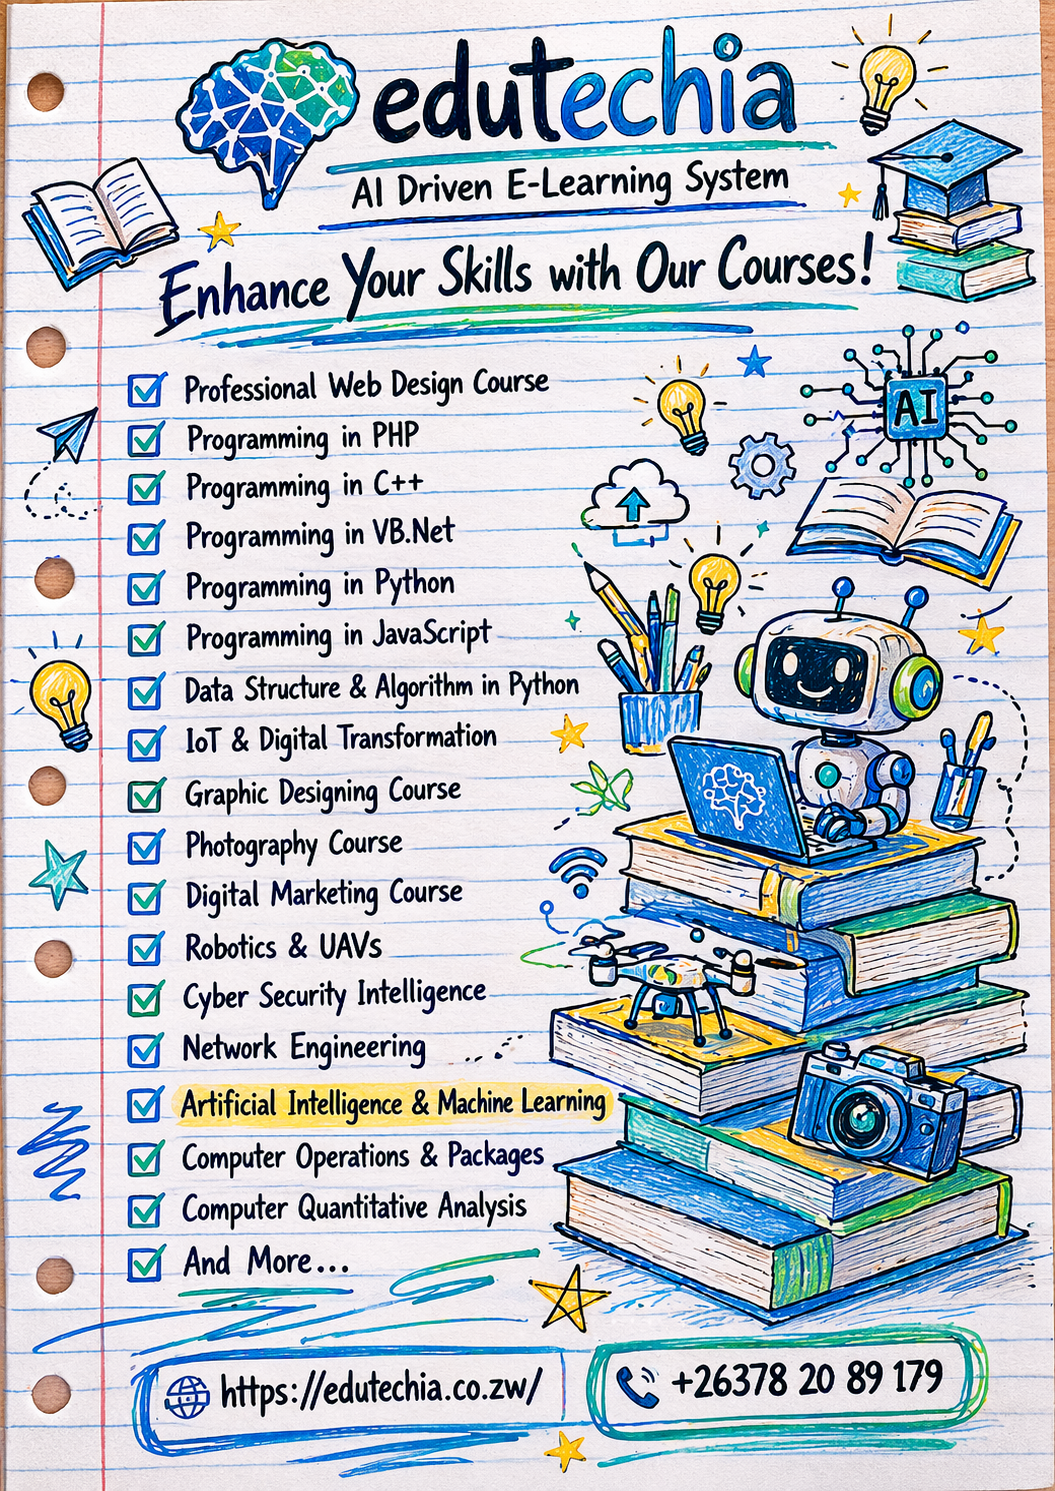 edutechia
AI Driven E-Learning System
Enhance Your Skills with Our Courses!
Professional Web Design Course
Programming in PHP
Programming in C++
Programming in VB.Net
Programming in Python
Programming in JavaScript
Data Structure & Algorithm in Python
IoT & Digital Transformation
Graphic Designing Course
Photography Course
Digital Marketing Course
Robotics & UAVs
Cyber Security Intelligence
Network Engineering
Artificial Intelligence & Machine Learning
Computer Operations & Packages
Computer Quantitative Analysis
And More...
AI
https://edutechia.co.zw/
+26378 20 89 179